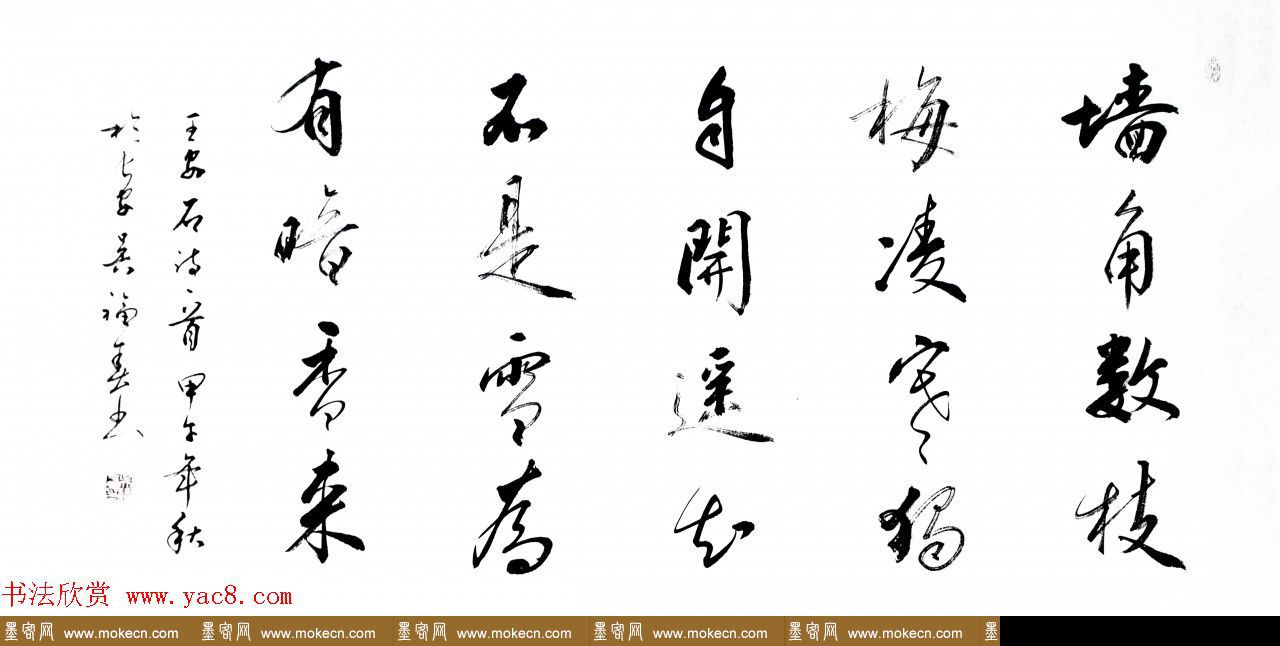 墙角数枝
梅凌寒独
自開遥知
不是雪為
有暗香来
王安石诗一首甲午年秋
於长安吴福春书
书法欣赏 www.yac8.com
墨客网 www.mokecn.com 墨客网 www.mokecn.com 墨客网 www.mokecn.com 墨客网 www.mokecn.com 墨客网 www.mokecn.com 墨